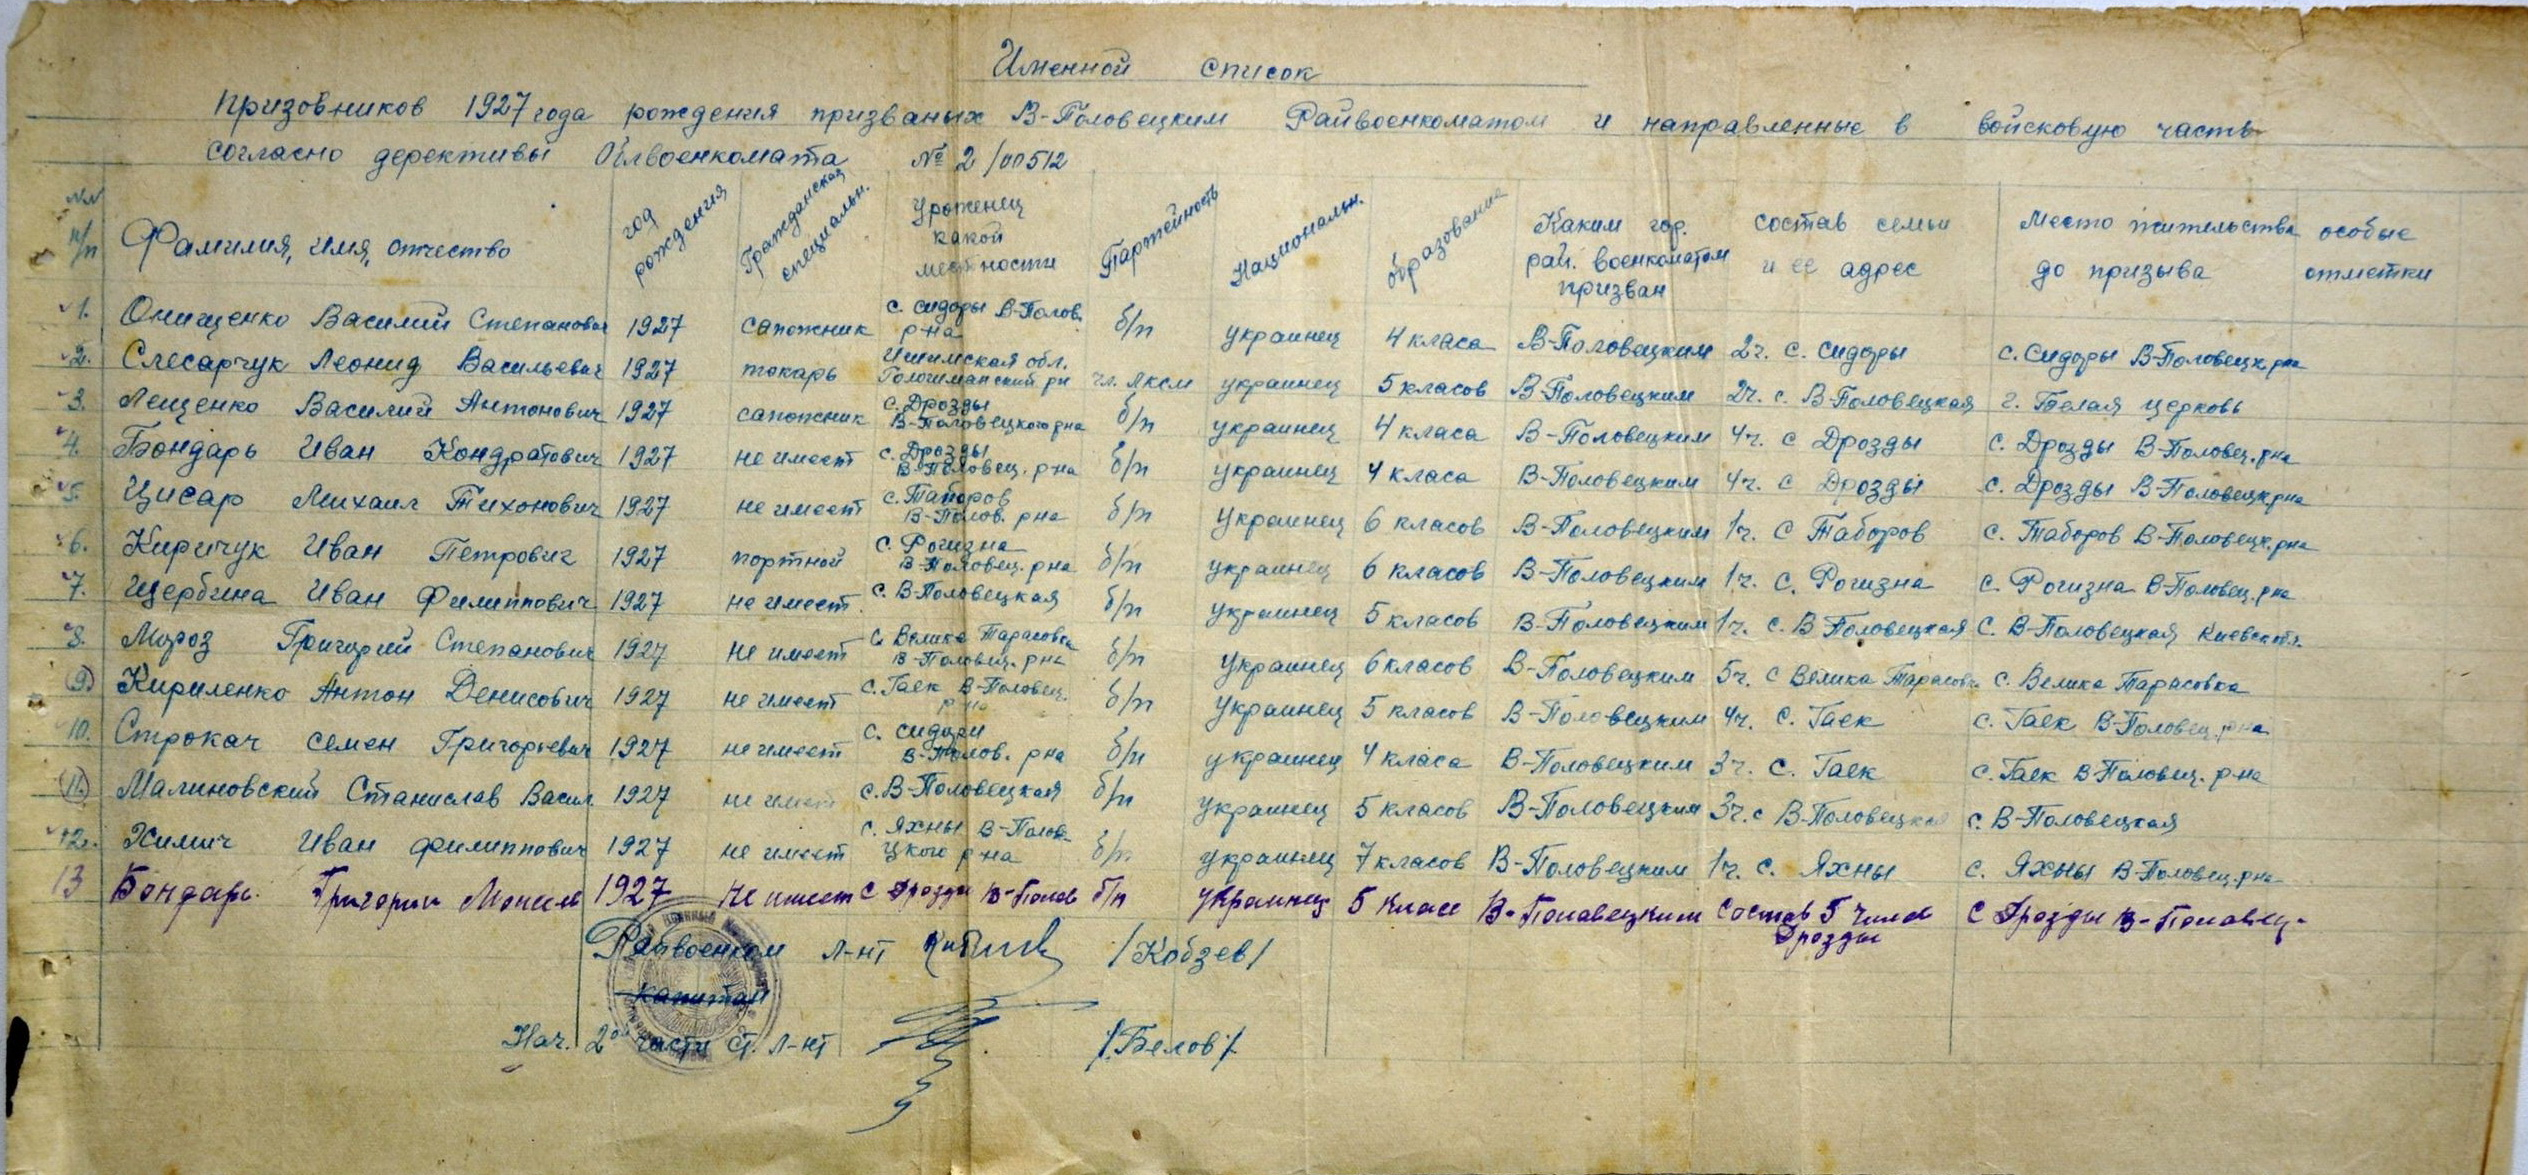 Именной список
призовников 1927 года рождения призваных В-Половецким Райвоенкоматом и направленные в войсковую часть
согласно дерективы Облвоенкомата № 2/00512
№№ п/п Фамилия, имя, отчество год рождения Гражданская специальн. Уроженец какой местности Партейность Национальн. образование Каким гор. рай. военкоматом призван состав семьи и ее адрес Место жительства до призыва особые отметки
1. Онищенко Василий Степанович 1927 сапожник с. Сидоры В-Полов. р-на б/п украинец 4 класа В-Половецким 2ч. с. Сидоры с. Сидоры В-Половецк. рна
2. Слесарчук Леонид Васильевич 1927 токарь Ишимская обл. рн чл. ЛКСМ украинец 5 класов В-Половецким 2ч. с. В-Половецкая г. Белая церковь
3. Лещенко Василий Антонович 1927 сапожник с. Дрозды В-Половецкого рна б/п украинец 4 класа В-Половецким 4ч. с Дрозды с. Дрозды В-Половец. рна
4. Бондарь Иван Кондратович 1927 не имеет с. Дрозды В-Половец. рна б/п украинец 4 класа В-Половецким 4ч. с Дрозды с. Дрозды В-Половецк рна
5. Цисар Михаил Тихонович 1927 не имеет с. Таборов В-Полов. рна б/п украинец 6 класов В-Половецким 1ч. с Таборов с. Таборов В-Половецк. рна
6. Киричук Иван Петрович 1927 портной с. Рогизна В-Половец. рна б/п украинец 6 класов В-Половецким 1ч. с. Рогизна с. Рогизна В-Половец. рна
7. Щербина Иван Филиппович 1927 не имеет. с. В-Половецкая б/п украинец 5 класов В-Половецким 1ч. с. В Половецкая с. В-Половецкая
8. Мороз Григорий Степанович 1927 не имеет с. Велика Тарасовка В-Половец. рна б/п украинец 6 класов В-Половецким 5ч. с Велика Тарасовк. с. Велика Тарасовка
9. Кириленко Антон Денисович 1927 не имеет с. Гаек В-Половец. рна б/п украинец 5 класов В-Половецким 4ч. с. Гаек с. Гаек В-Половец. рна
10. Строкач Семен Григорьевич 1927 не имеет с. Сидори В-Полов. рна б/п украинец 4 класа В-Половецким 3ч. с. Гаек с. Гаек В-Половец. р-на
11. Малиновский Станислав Васил. 1927 не имеет с. В-Половецкая б/п украинец 5 класов В-Половецким 3ч. с В-Половецкая с. В-Половецкая
12. Химич Иван Филиппович 1927 не имеет с. Яхны В-Половецкого р-на б/п украинец 7 класов В-Половецким 1ч. с. Яхны с. Яхны В-Половец. рна
13 Бондарь Григорий 1927 не имеет с Дрозди В-Полов б/п украинец 5 класс В-Полавецким Состав 5 Дрозды с Дрозды В-Полавец-
Райвоенком л-нт /Кобзев/
капитан
Нач. 2ой части ст. л-нт /Белов/